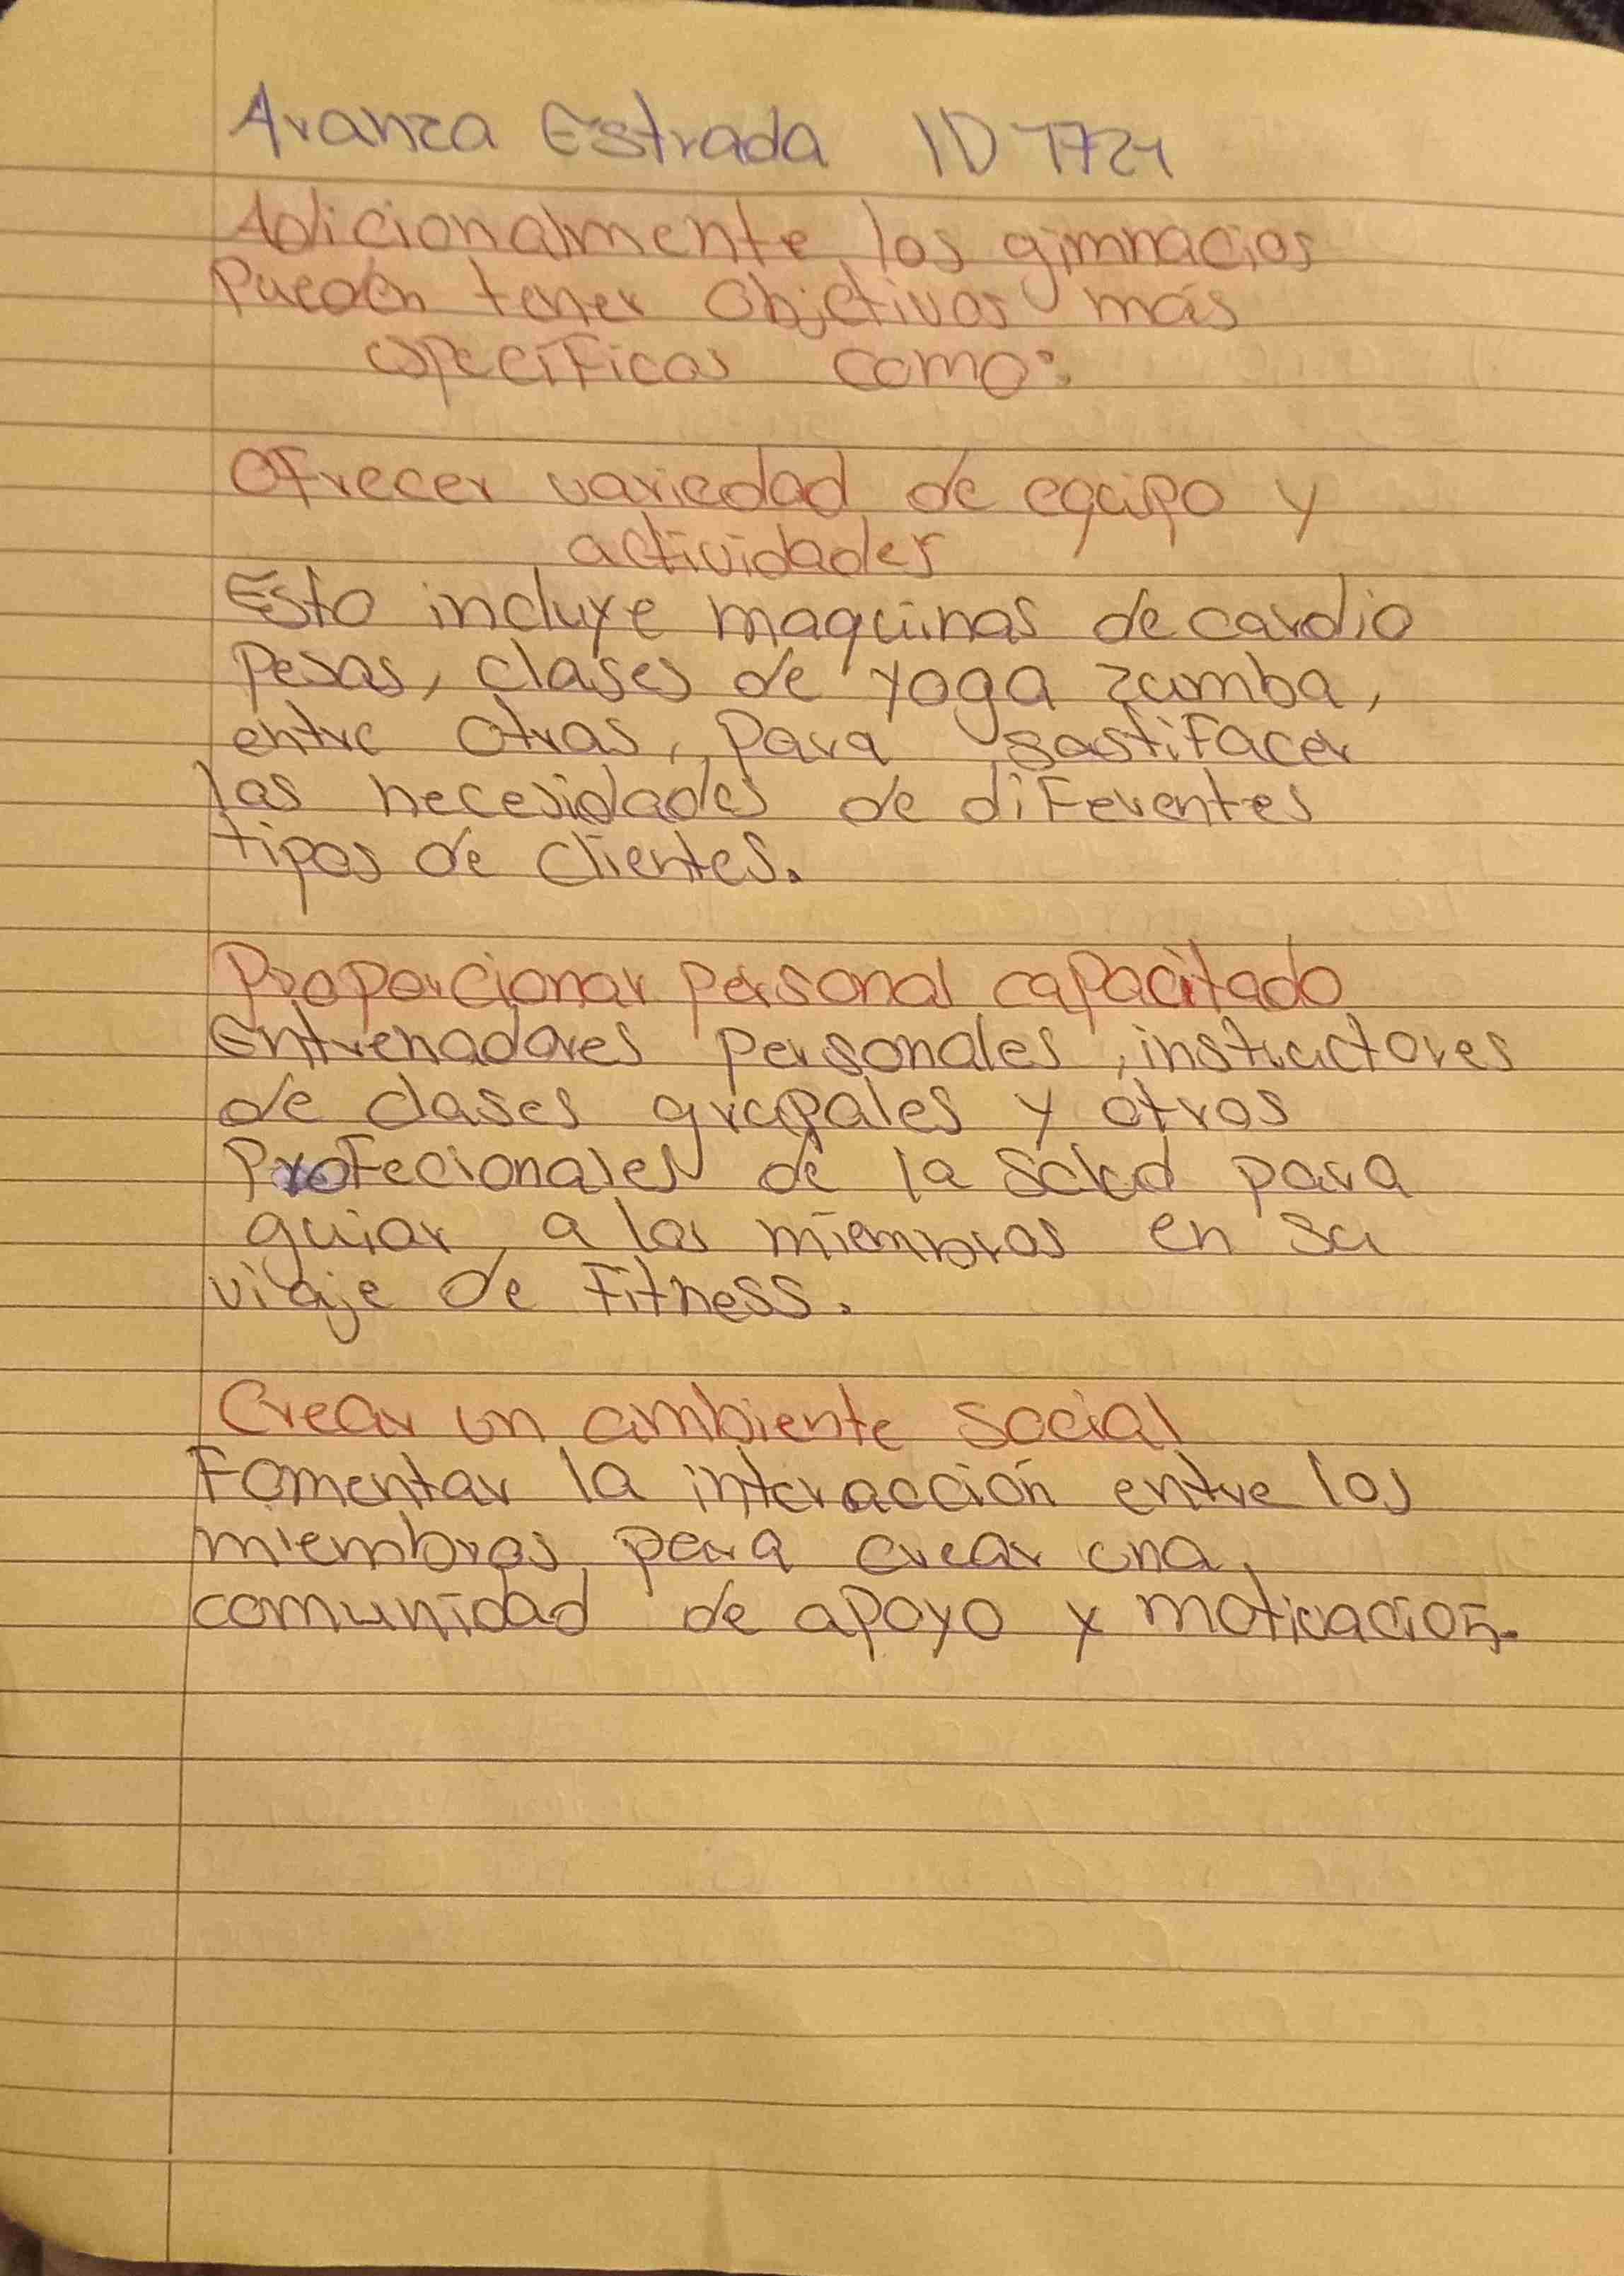 Aranza Estrada ID 7724
Adicionalmente los gimnacios
Pueden tener objetivos más
específicos como:
Ofrecer variedad de equipo y
actividades
Esto incluye maquinas de cardio
Pesas, clases de yoga zumba,
entre otras, para sastifacer
las necesidades de diferentes
tipos de clientes.
Proporcionar personal capacitado
Entrenadores personales, instructores
de clases grupales y otros
Profecionales de la salud para
guiar a los miembros en su
viaje de Fitness.
Crear un ambiente social
Fomentar la interacción entre los
miembros para crear una
comunidad de apoyo y motivación.